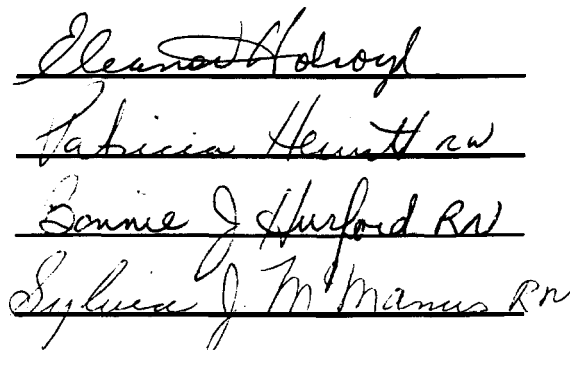 Eleanor Holroyd
Patricia Hewitt RN
Bonnie J Hurford RN
Sylvia J. McManus RN